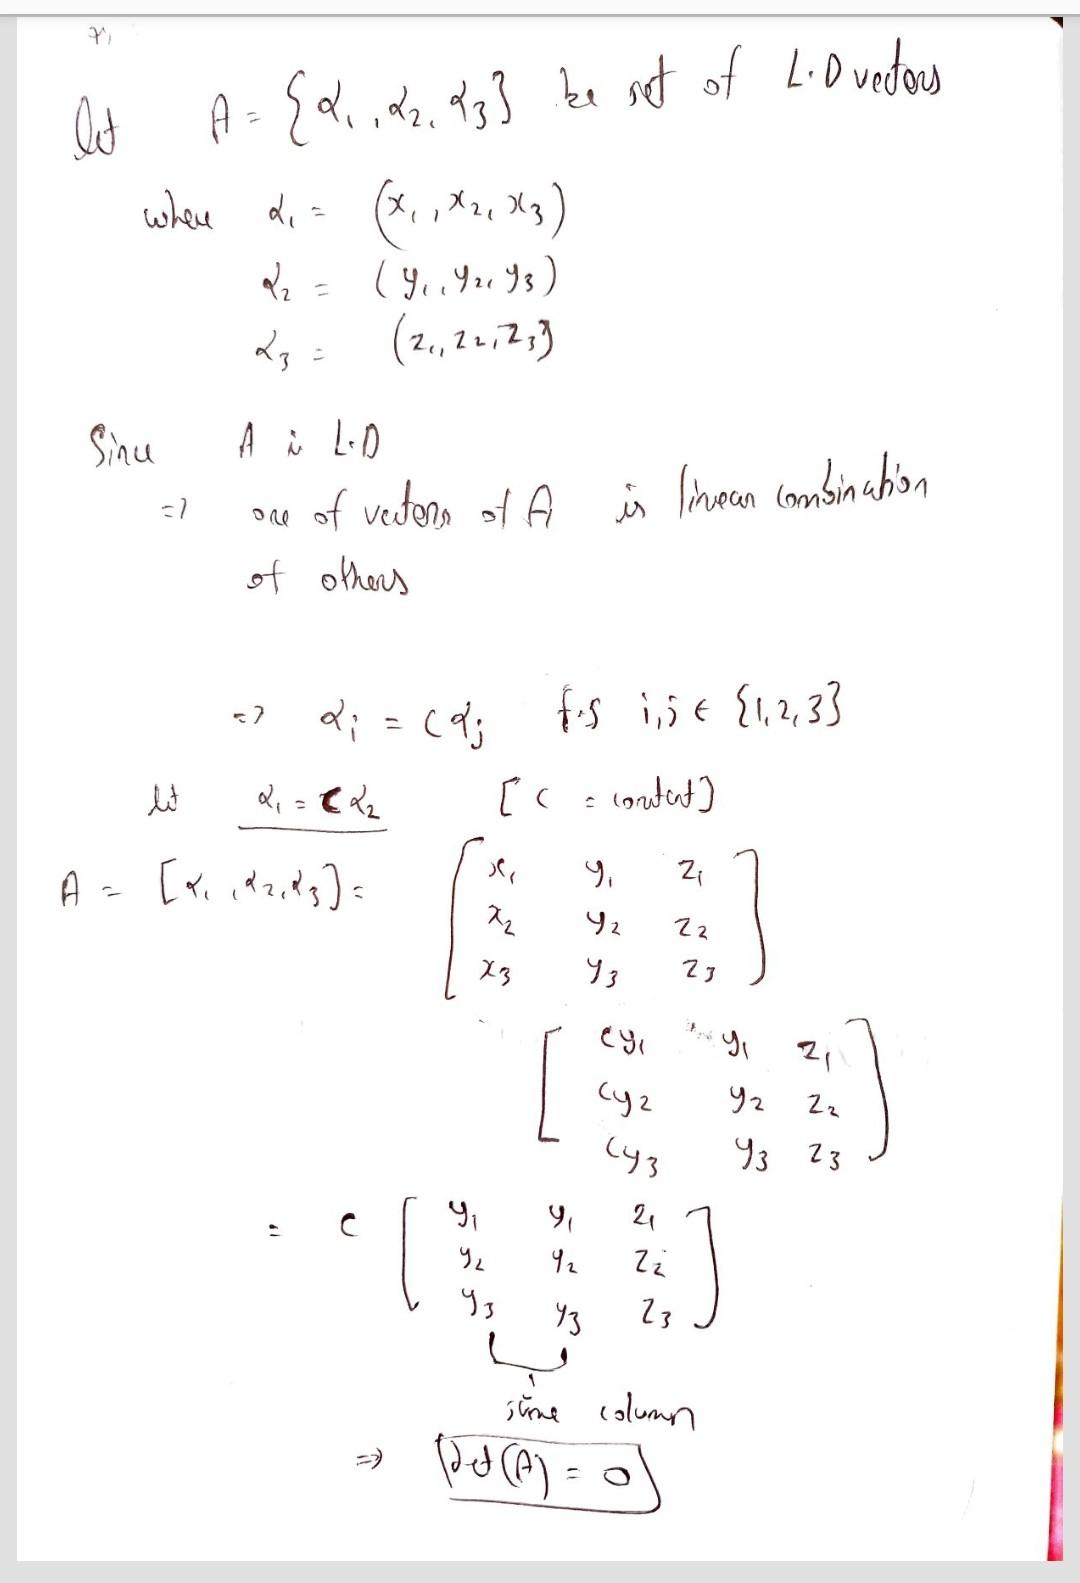 let A = {α₁, α₂, α₃} be set of L.D vectors
where α₁ = (x₁, x₂, x₃)
α₂ = (y₁, y₂, y₃)
α₃ = (z₁, z₂, z₃)
Since A is L.D
=> one of vectors of A is linear combination
of others
=> αᵢ = cαⱼ f.s i,j ∈ {1,2,3}
let α₁ = cα₂ [c = constant]
A = [α₁, α₂, α₃] = [x₁ y₁ z₁
x₂ y₂ z₂
x₃ y₃ z₃]
[cy₁ y₁ z₁
cy₂ y₂ z₂
cy₃ y₃ z₃]
= c [y₁ y₁ z₁
y₂ y₂ z₂
y₃ y₃ z₃]
same column
=> det(A) = 0